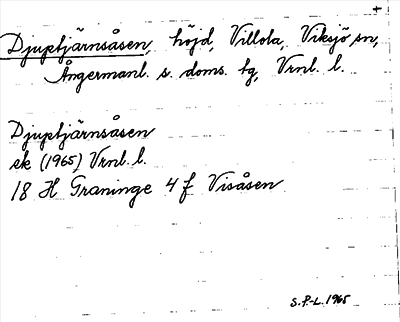 Djuptjärnsåsen, höjd, Villola, Viksjö sn,
Ångermanl. s. doms. tg, Vrnl. l.
Djuptjärnsåsen
ek (1965) Vrnl. l.
18 H Graninge 4 f Visåsen
S.P-L. 1965